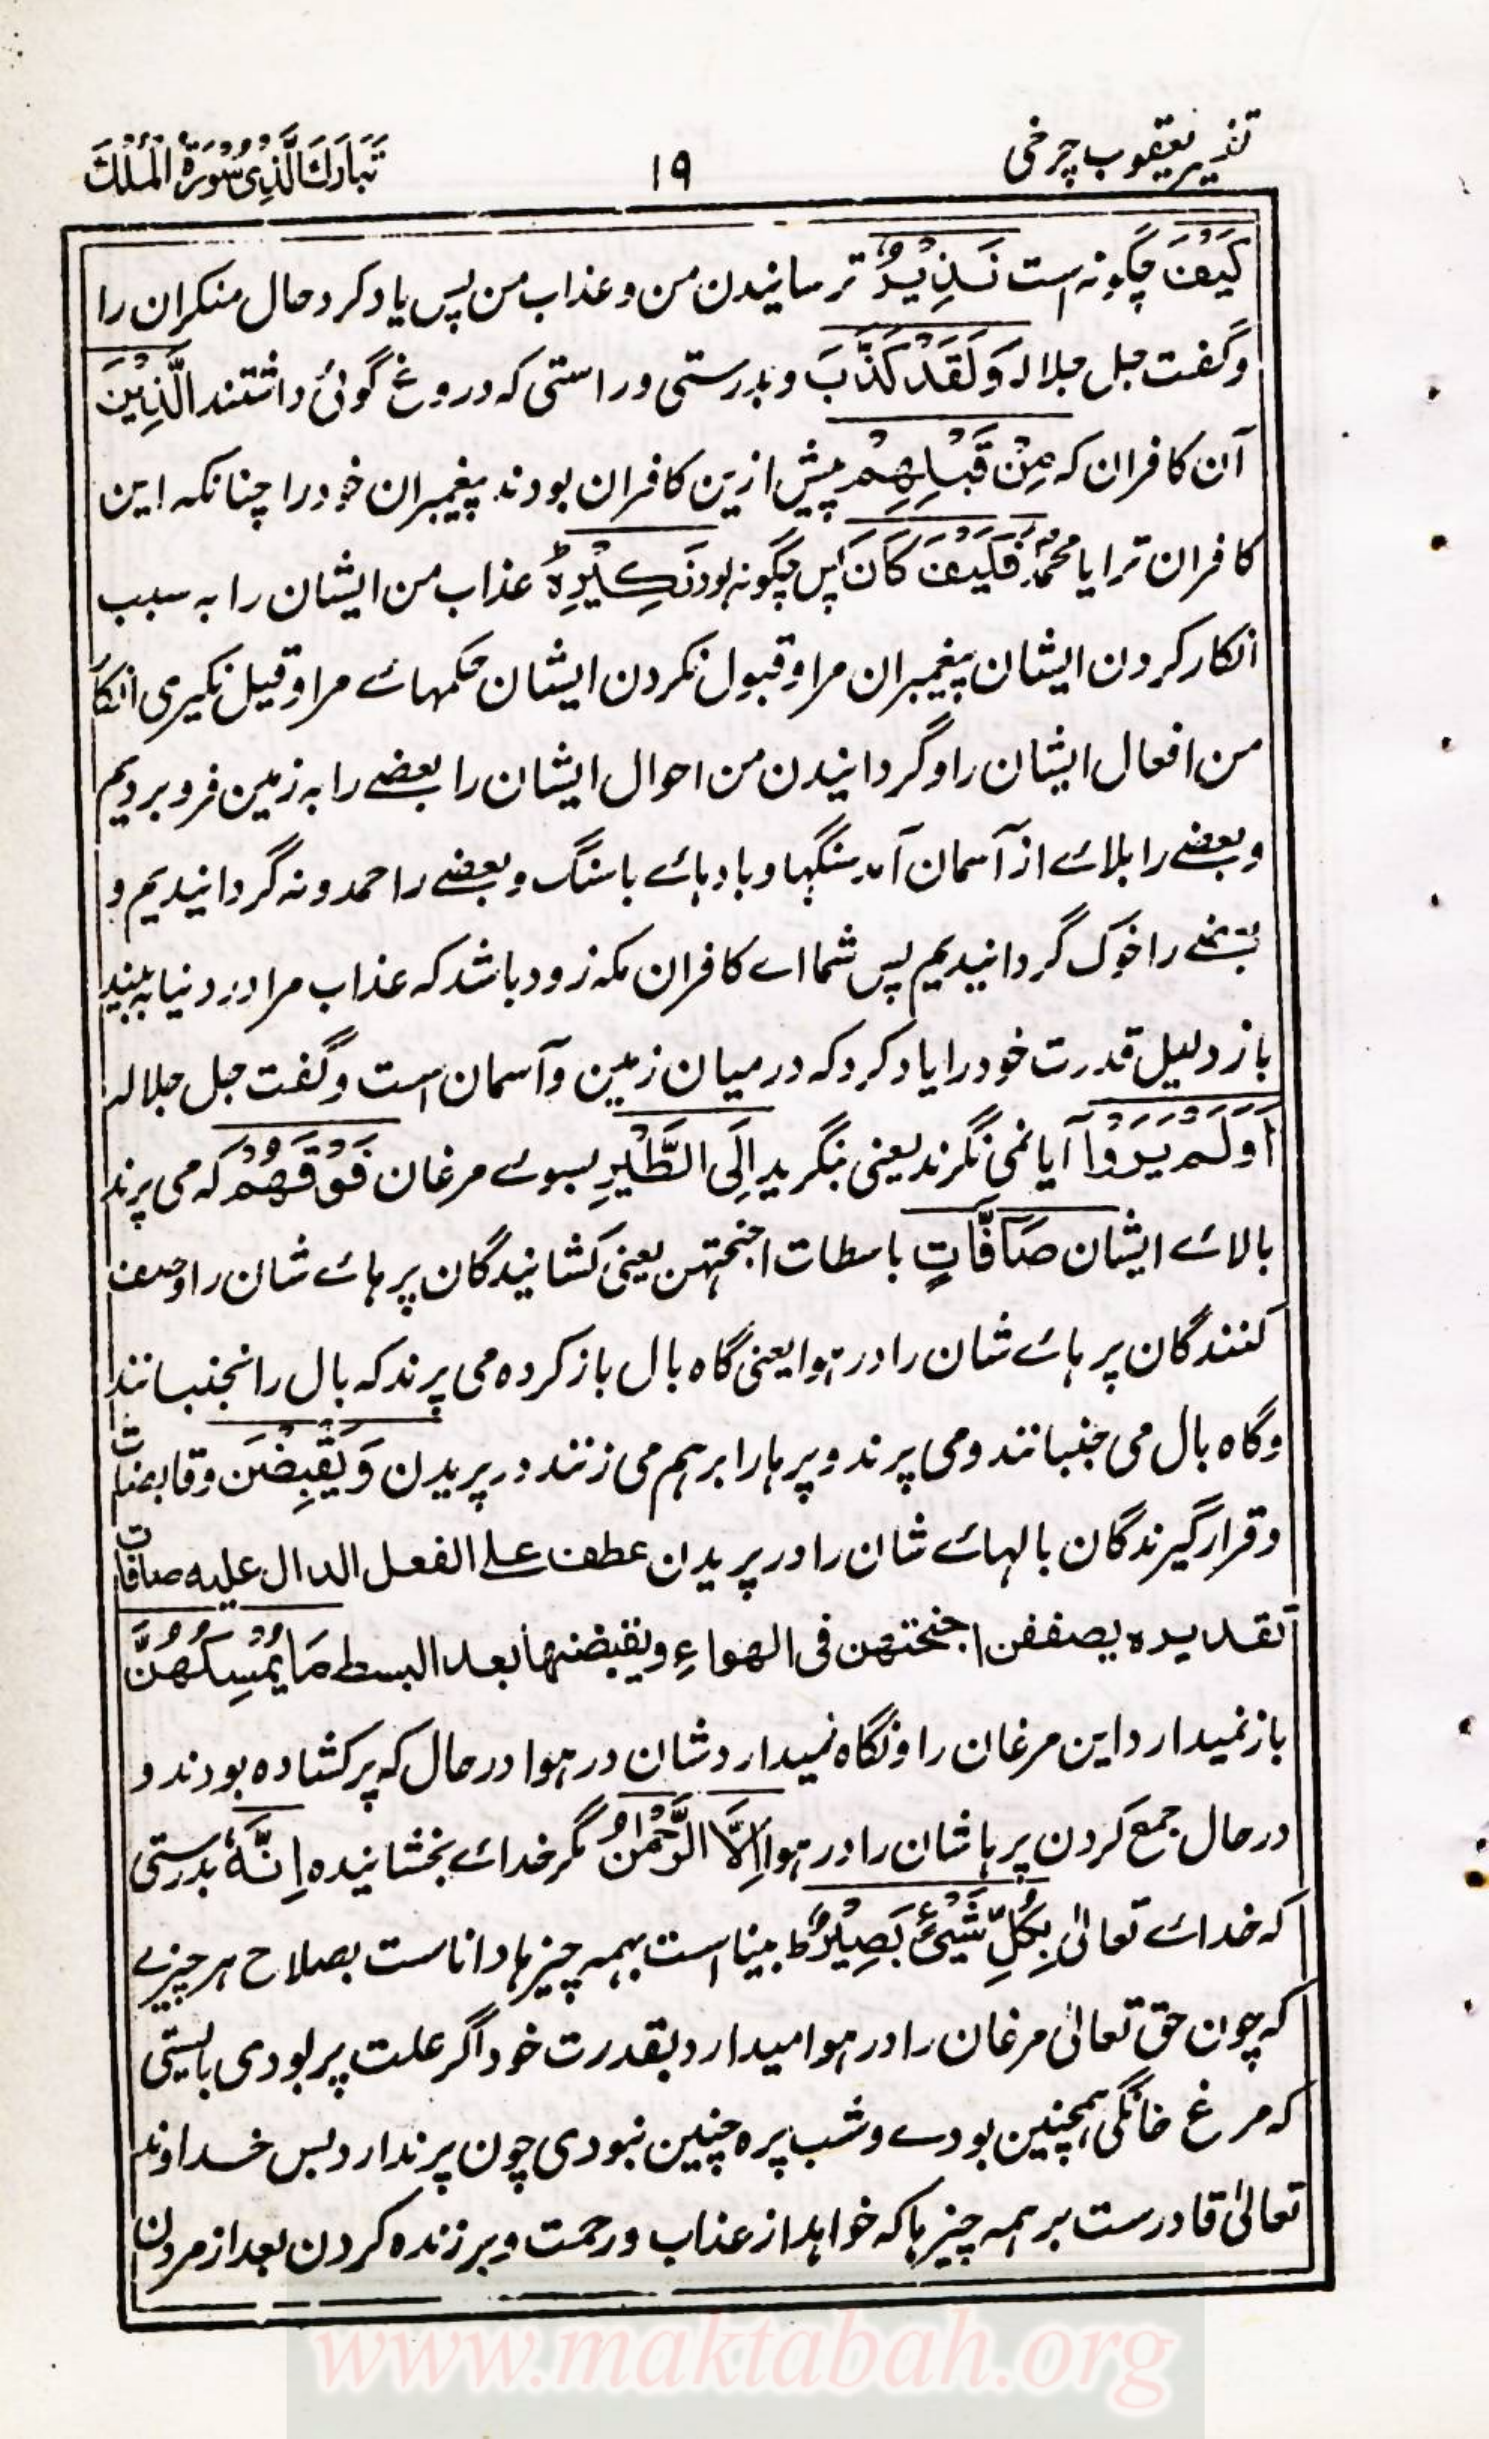 تفسیر یعقوب چرخی ۱۹ تَبَارَكَ الَّذِیْ سُوْرَۃُ الْمُلْكَ
کَیْفَ چگونہ است نَذِیْرُ ترسانیدن من و عذاب من پس یاد کرد حال منکران را
وگفت جل جلالہ وَلَقَدْ کَذَّبَ وبدرستی وراستی کہ دروغ گوئی داشتند الَّذِیْنَ
آن کافران کہ مِنْ قَبْلِهِمْ پیش ازین کافران بودند پیغمبران خود را چنانکہ این
کافران ترا یا محمدؐ فَکَیْفَ کَانَ پس چگونہ بود نَکِیْرِہٗ عذاب من ایشان را بہ سبب
انکار کردن ایشان پیغمبران مرا و قبول نکردن ایشان حکمہائے مرا و قیل نکیری انکا
من افعال ایشان را وگردانیدن من احوال ایشان را بعضے را بہ زمین فرو بردیم
وبعضے را بلائے از آسمان آمد سنگہا و بادہائے باسنگ وبعضے را حمدونہ گردانیدیم و
بعضے را خوک گردانیدیم پس شما اے کافران مکہ زود باشد کہ عذاب مرا در دنیا بہ بینید
باز دلیل قدرت خود را یاد کرد کہ درمیان زمین وآسمان است وگفت جل جلالہ
اَوَلَمْ یَرَوْا آیا نمی نگرند یعنی بنگرید اِلَی الطَّیْرِ بسوئے مرغان فَوْقَهُمْ کہ می پرند
بالائے ایشان صَآفَّاتٍ باسطات اجنحتهن یعنی کشانیدگان پرہائے شان را وصف
کنندگان پرہائے شان را در ہوا یعنی گاہ بال باز کردہ می پرند کہ بال را نجنبانند
وگاہ بال می جنبانند ومی پرند وپرہا را برہم می زنند در پریدن وَیَقْبِضْنَ وقابضات
وقرار گیرندگان بالہائے شان را در پریدن عطف علی الفعل الدال علیہ صافات
تقدیرہ یصففن اجنحتهن فی الهواءِ ویقبضنها بعد البسط مَا یُمْسِکُهُنَّ
باز نمیدارد این مرغان را ونگاہ نمیدارد شان در ہوا در حال کہ پر کشادہ بودند و
در حال جمع کردن پرہا شان را در ہوا اِلَّا الرَّحْمٰنُ مگر خدائے بخشانیدہ اِنَّهٗ بدرستی
کہ خدائے تعالیٰ بِکُلِّ شَیْءٍ بَصِیْرٌ ط بینا است بہمہ چیزہا دانا ست بصلاح ہر چیزے
کہ چون حق تعالیٰ مرغان را در ہوا میدارد بقدرت خود اگر علت پر بودی بایستی
کہ مرغ خانگی ہمچنین بودے و شب پرہ چنین نبودی چون پر ندارد بس خداوند
تعالیٰ قادر ست بر ہمہ چیزہا کہ خواہد از عذاب ورحمت وبر زندہ کردن بعد از مردن
www.maktabah.org